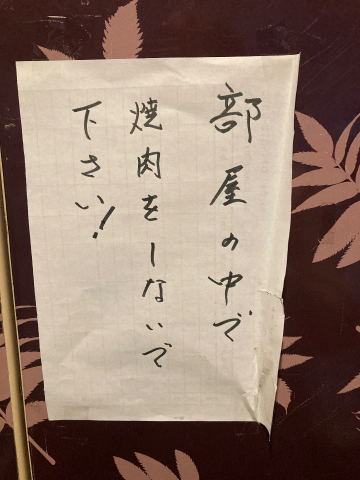 部屋の中で
焼肉をしないで
下さい!